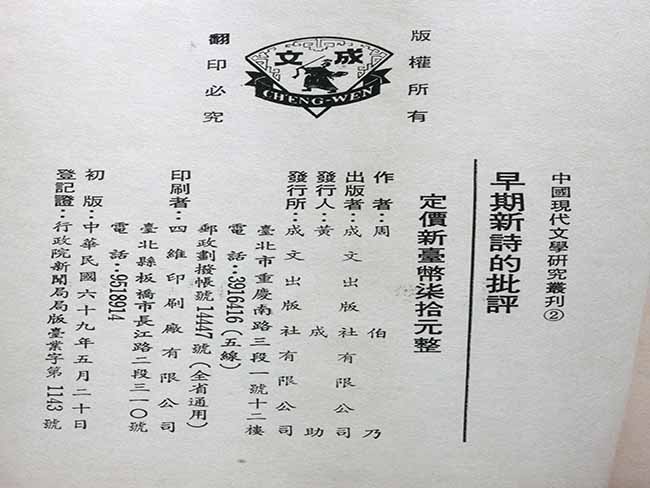 版權所有
成文
CHENG-WEN
翻印必究
中國現代文學研究叢刊②
早期新詩的批評
定價新臺幣柒拾元整
作者：周伯乃
出版者：成文出版社有限公司
發行人：黃成助
發行所：成文出版社有限公司
臺北市重慶南路三段一號十二樓
電話：3916416（五線）
郵政劃撥帳號14447號（全省通用）
印刷者：四維印刷廠有限公司
臺北縣板橋市長江路二段三一〇號
電話：9518914
初版：中華民國六十九年五月二十日
登記證：行政院新聞局局版臺業字第1143號